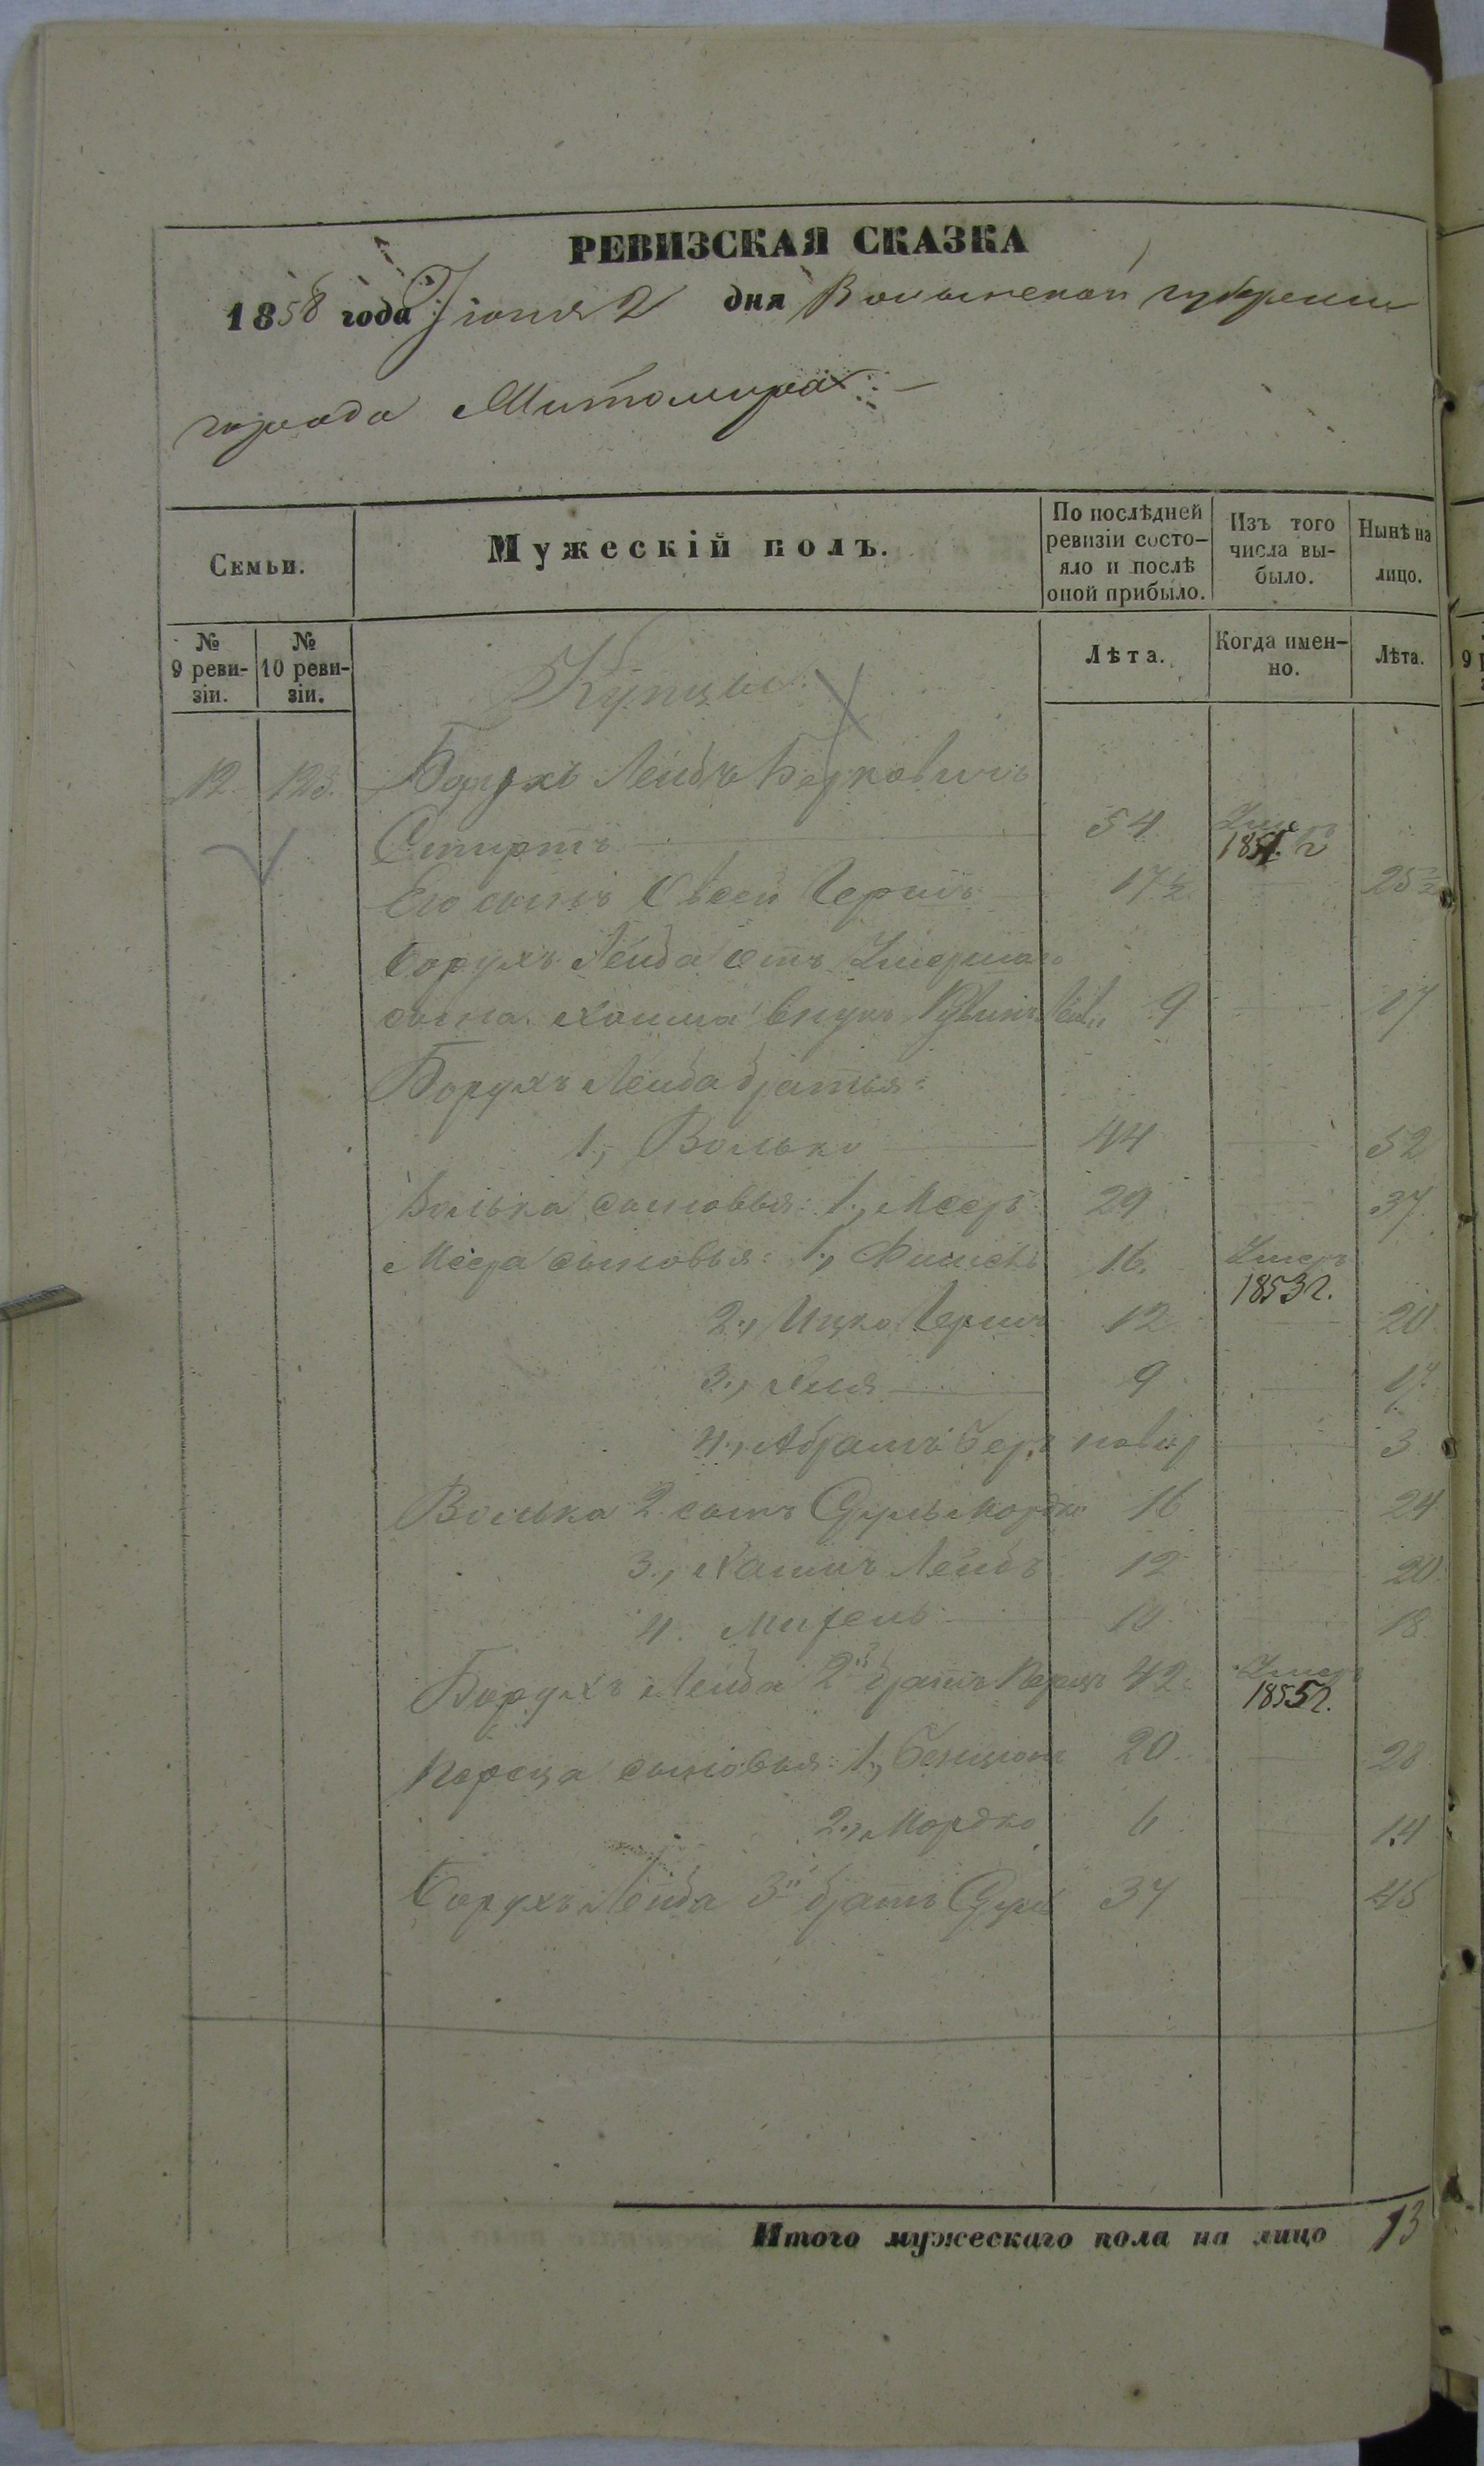 РЕВИЗСКАЯ СКАЗКА
1858 года Іюня 2 дня Волынской губерніи
города Житомира
Семьи.
Мужескій полъ.
По послѣдней ревизіи состо-
яло и послѣ
оной прибыло.
Изъ того
числа вы-
было.
Нынѣ на
лицо.
№
9 реви-
зіи.
№
10 реви-
зіи.
Лѣта.
Когда имен-
но.
Лѣта.
9
Купцы
12. 123. Борухъ Лейбъ Берковичь
54 1851 г
Его сынъ Евсей Гершъ 17 ½ 25 ½
Борухъ Лейба отъ Умершаго
сына Хаима внукъ 9 17
Борухъ Лейба братья:
1., Волько 44 52
Волька сыновья: 1., Мееръ 29 37
Меера сыновья: 1., Фишель 16. Умеръ
1853 г.
2., Ицко Гершъ 12 20
3., Еля 9 17
4., Абрамъ Беръ новор 3
Волька 2 сынъ Сруль Мордко 16 24
3., Хаимъ Лейбъ 12 20
4. 10 18
Борухъ Лейба 2й братъ Перецъ 42 Умеръ
1855 г.
Переца сыновья: 1., Бенціонъ 20 28
2., Мордко 6 14
Борухъ Лейба 3й братъ Сруль 37 45
Итого мужескаго пола на лицо 13